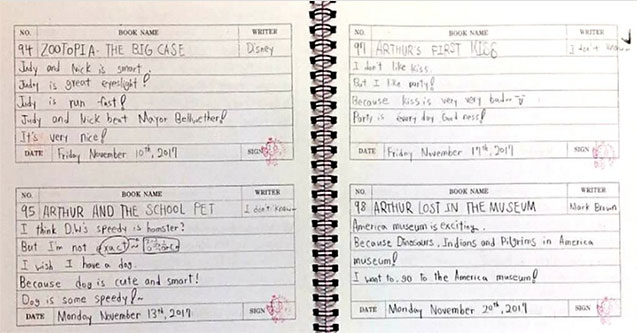 NO. BOOK NAME WRITER
94 ZOOTOPIA- THE BIG CASE Disney
Judy and Nick is smart.
Judy is great eyeslight!
Judy is run fast!
Judy and Nick beat Mayor Bellwether!
It's very nice!
DATE Friday November 10th, 2017 SIGN
NO. BOOK NAME WRITER
95 ARTHUR AND THE SCHOOL PET I don't know
I think D.W's speedy is hamster!
But I'm not exact~
I wish I have a dog.
Because dog is cute and smart!
Dog is some speedy!~
DATE Monday November 13th, 2017 SIGN
NO. BOOK NAME WRITER
97 ARTHUR'S FIRST KISS I don't know
I don't like kiss.
But I like party!
Because kiss is very very bad
Party is every day Good
DATE Friday November 17th, 2017 SIGN
NO. BOOK NAME WRITER
98 ARTHUR LOST IN THE MUSEUM Mark Brown
America museum is exciting.
Because Dinosaurs, Indians and Pilgrims in America
museum!
I want to go to the America museum!
DATE Monday November 20th, 2017 SIGN